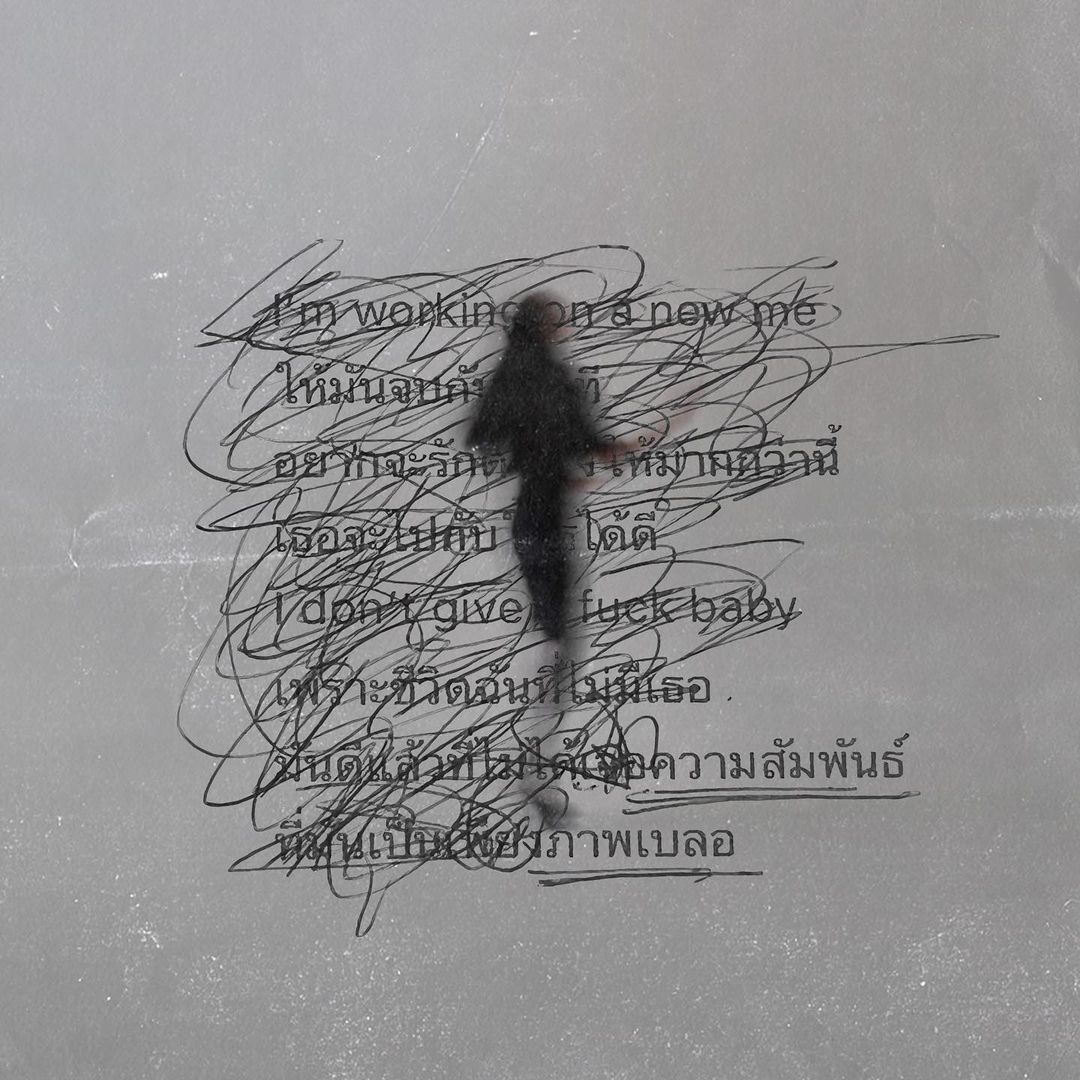 I'm working on a new me
ให้มันจบกันสักที
อยากจะรักตัวเองให้มากกว่านี้
เธอจะไปกับใครได้ดี
I don't give a fuck baby
เพราะชีวิตฉันที่ไม่มีเธอ
มันดีแล้วที่ไม่ได้เจอความสัมพันธ์
ที่มันเป็นเพียงภาพเบลอ